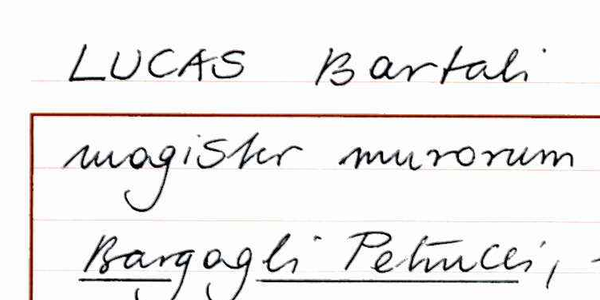 LUCAS Bartali
magister murorum
Bargagli Petrucci, -